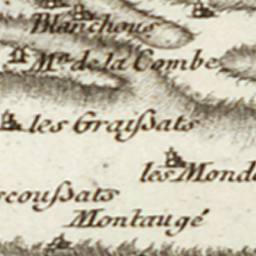 Blanchous
Mn. de la Combe
les Graißats
les Mond
scoußats
Montaugé